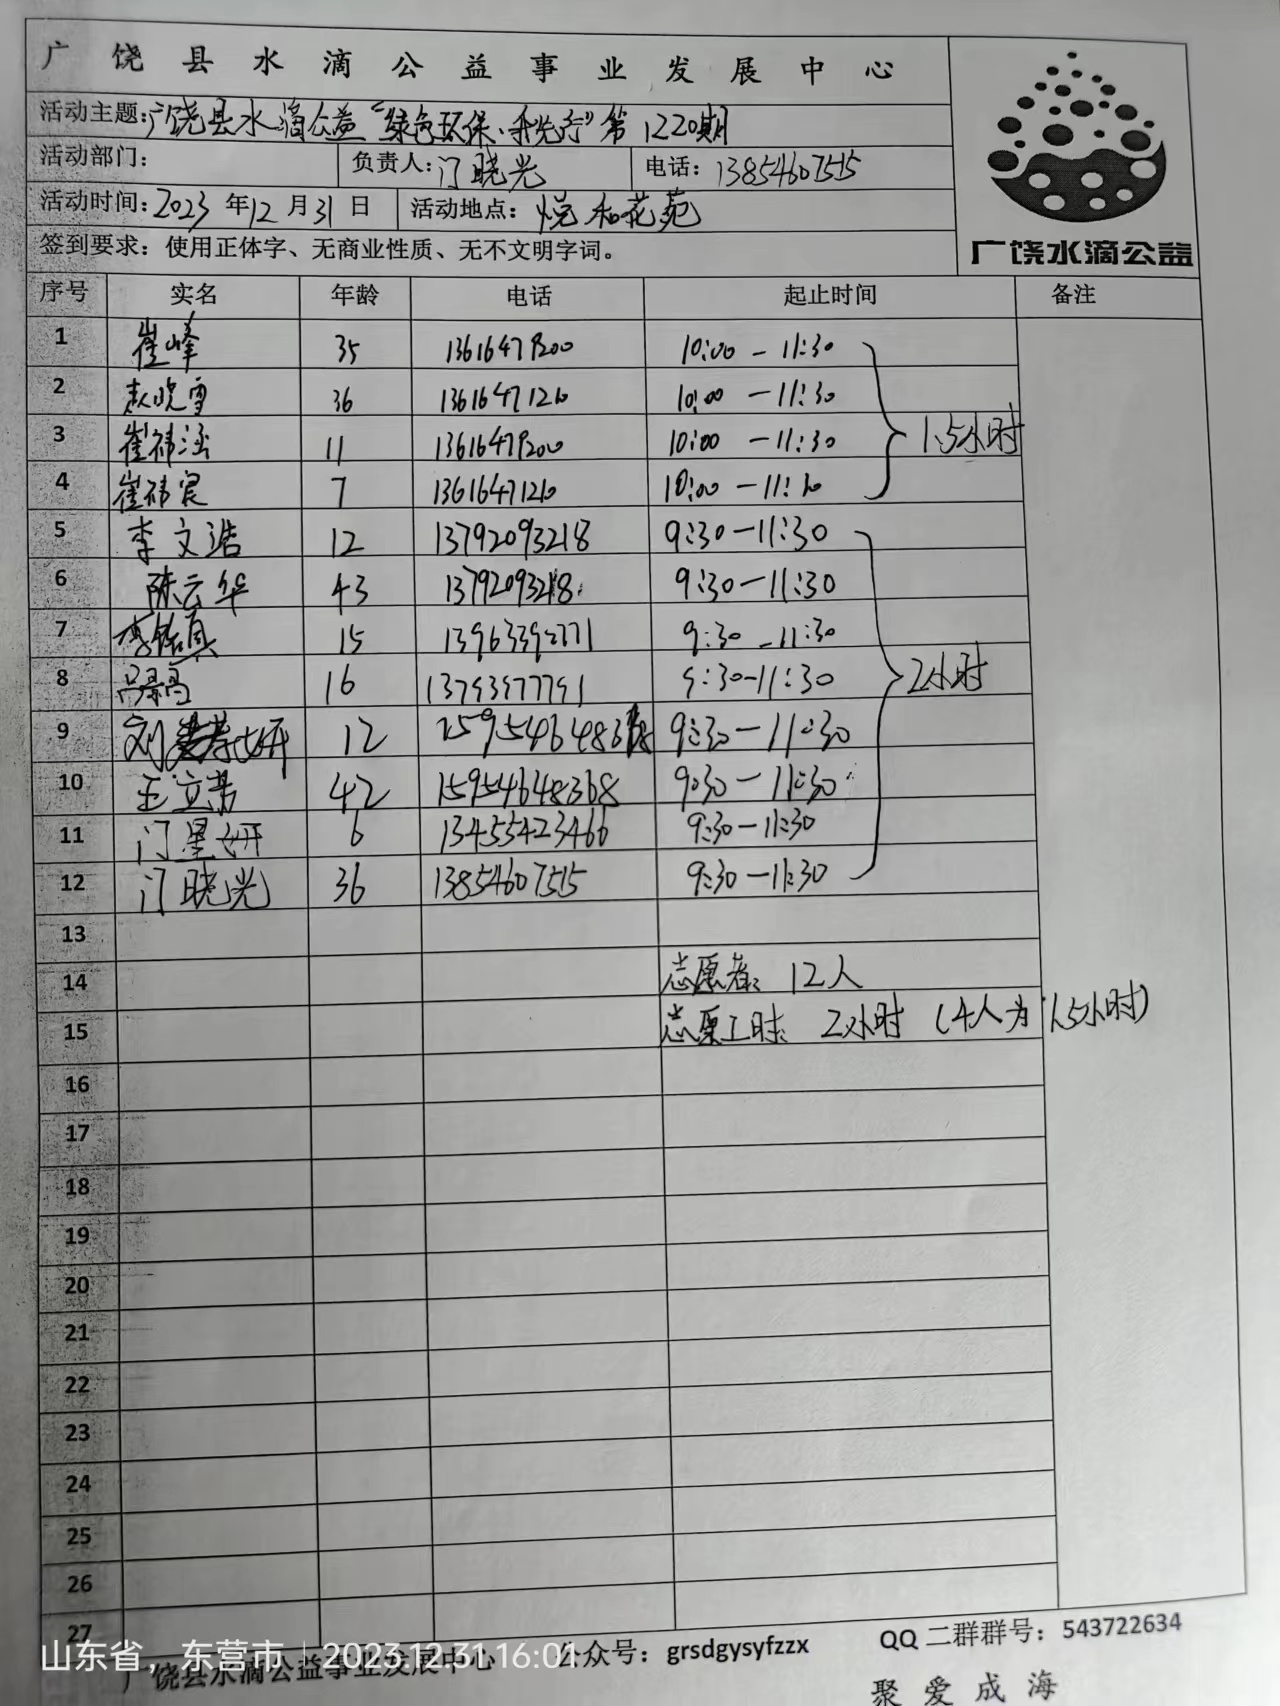 广饶县水滴公益事业发展中心
活动主题:广饶县水滴公益“绿色环保、我先行”第1220期
活动部门: 负责人:门晓光 电话:13854607515
活动时间:2023年12月31日 活动地点:悦和花苑
签到要求:使用正体字、无商业性质、无不文明字词。
广饶水滴公益
序号 实名 年龄 电话 起止时间 备注
1 崔峰 35 13616479200 10:00-11:30
2 赵晓雪 36 13616471210 10:00-11:30
3 崔祎涵 11 13616479200 10:00-11:30
1.5小时
4 崔祎宸 7 13616471210 10:00-11:30
5 李文浩 12 13792093218 9:30-11:30
6 陈云华 43 13792093218 9:30-11:30
7 15 13963392771 9:30-11:30
8 16 13793977791 9:30-11:30
2小时
9 刘 妍 12 15954648368 9:30-11:30
10 王立 42 15954648368 9:30-11:30
11 门星妍 6 13455423466 9:30-11:30
12 门晓光 36 13854607515 9:30-11:30
13
14 志愿者:12人
15 志愿工时:2小时(4人为1.5小时)
16
17
18
19
20
21
22
23
24
25
26
27
山东省,东营市 2023.12.31 16:01
广饶县水滴公益事业发展中心 公众号:grsdgysyfzzx QQ二群群号:543722634
聚爱成海